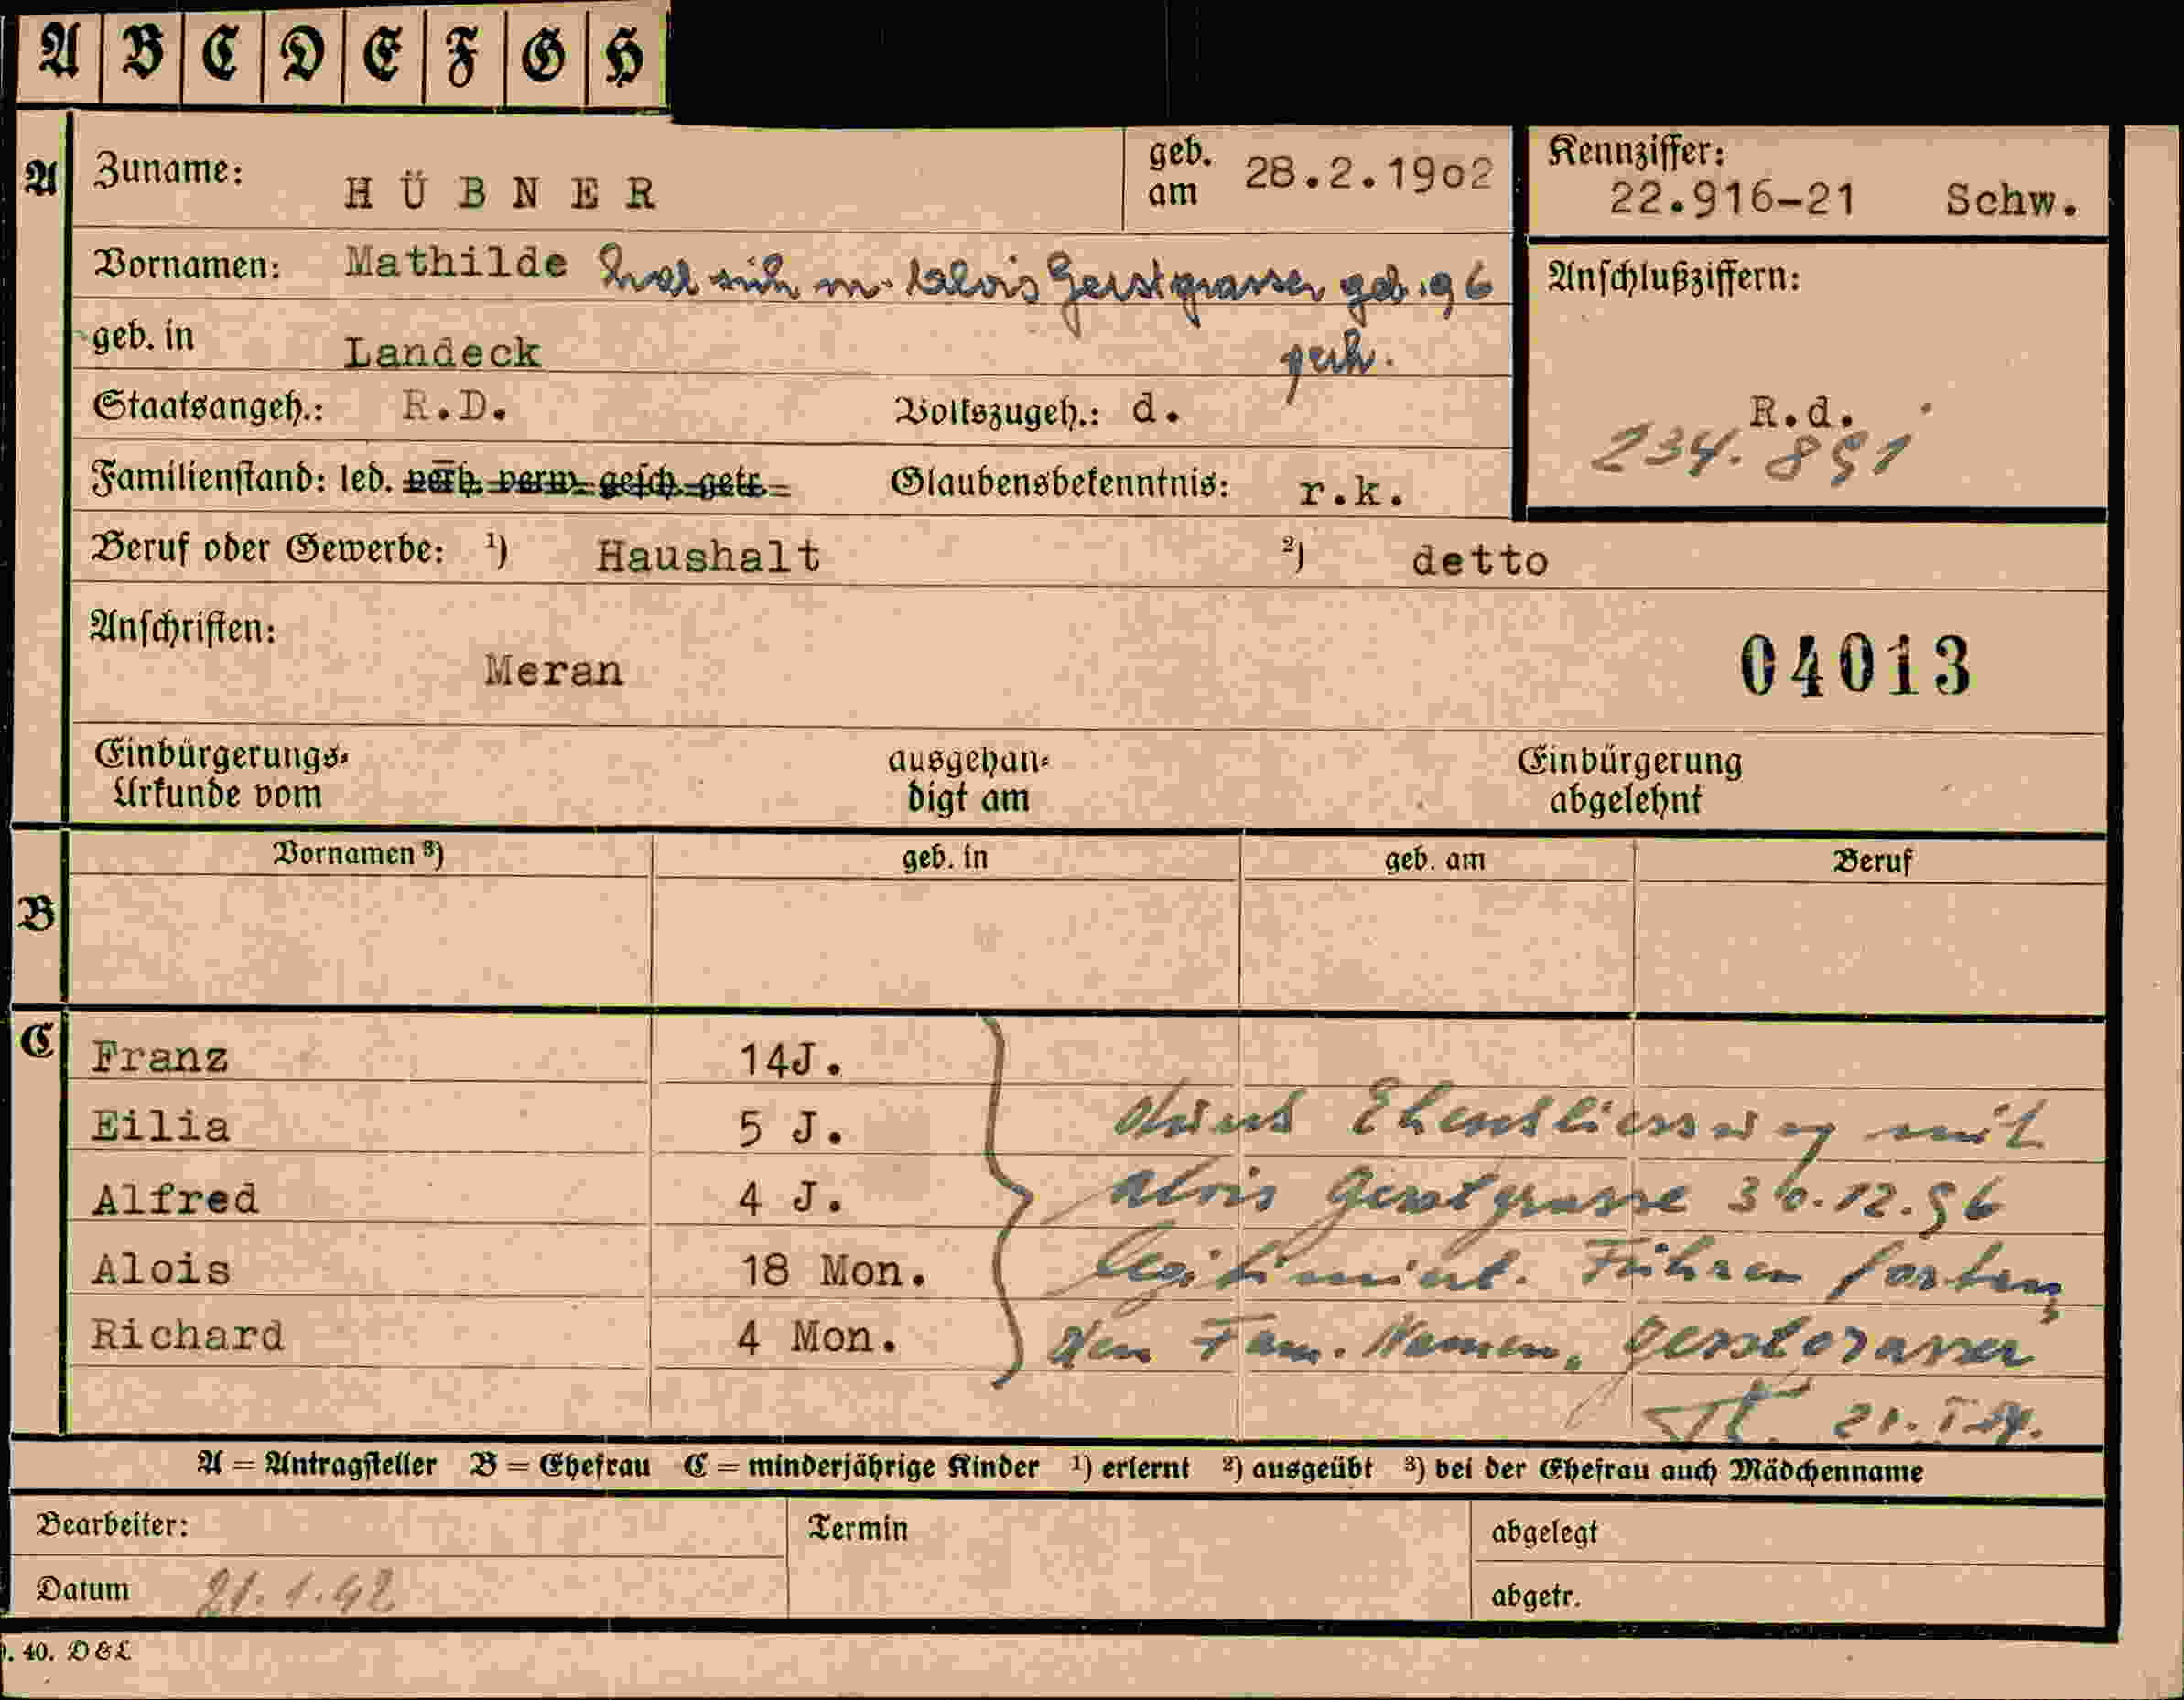 A B C D E F G H
A
Zuname: HÜBNER geb. am 28.2.1902
Kennziffer: 22.916-21 Schw.
Vornamen: Mathilde hat sich m. Alois Gerstgrasser geb. 96
verh.
Anschlußziffern:
geb. in Landeck
Staatsangeh.: R.D. Volkszugeh.: d.
R.d.
234.891
Familienstand: led. verh. verw. gesch. getr. Glaubensbekenntnis: r.k.
Beruf oder Gewerbe: ¹) Haushalt ²) detto
Anschriften: Meran
04013
Einbürgerungs-Urkunde vom ausgehändigt am Einbürgerung abgelehnt
Vornamen ³) geb. in geb. am Beruf
B
C
Franz 14J.
Eilia 5 J.
Alfred 4 J.
Alois 18 Mon.
Richard 4 Mon.
durch Ehenschliessung mit
Alois Gerstgrasser 30.12.96
legitimiert. Führen fortan
den Fam. Namen, Gerstgrasser
A = Antragsteller B = Ehefrau C = minderjährige Kinder ¹) erlernt ²) ausgeübt ³) bei der Ehefrau auch Mädchenname
Bearbeiter: Termin abgelegt
Datum 21.1.42 abgetr.
40. DEL